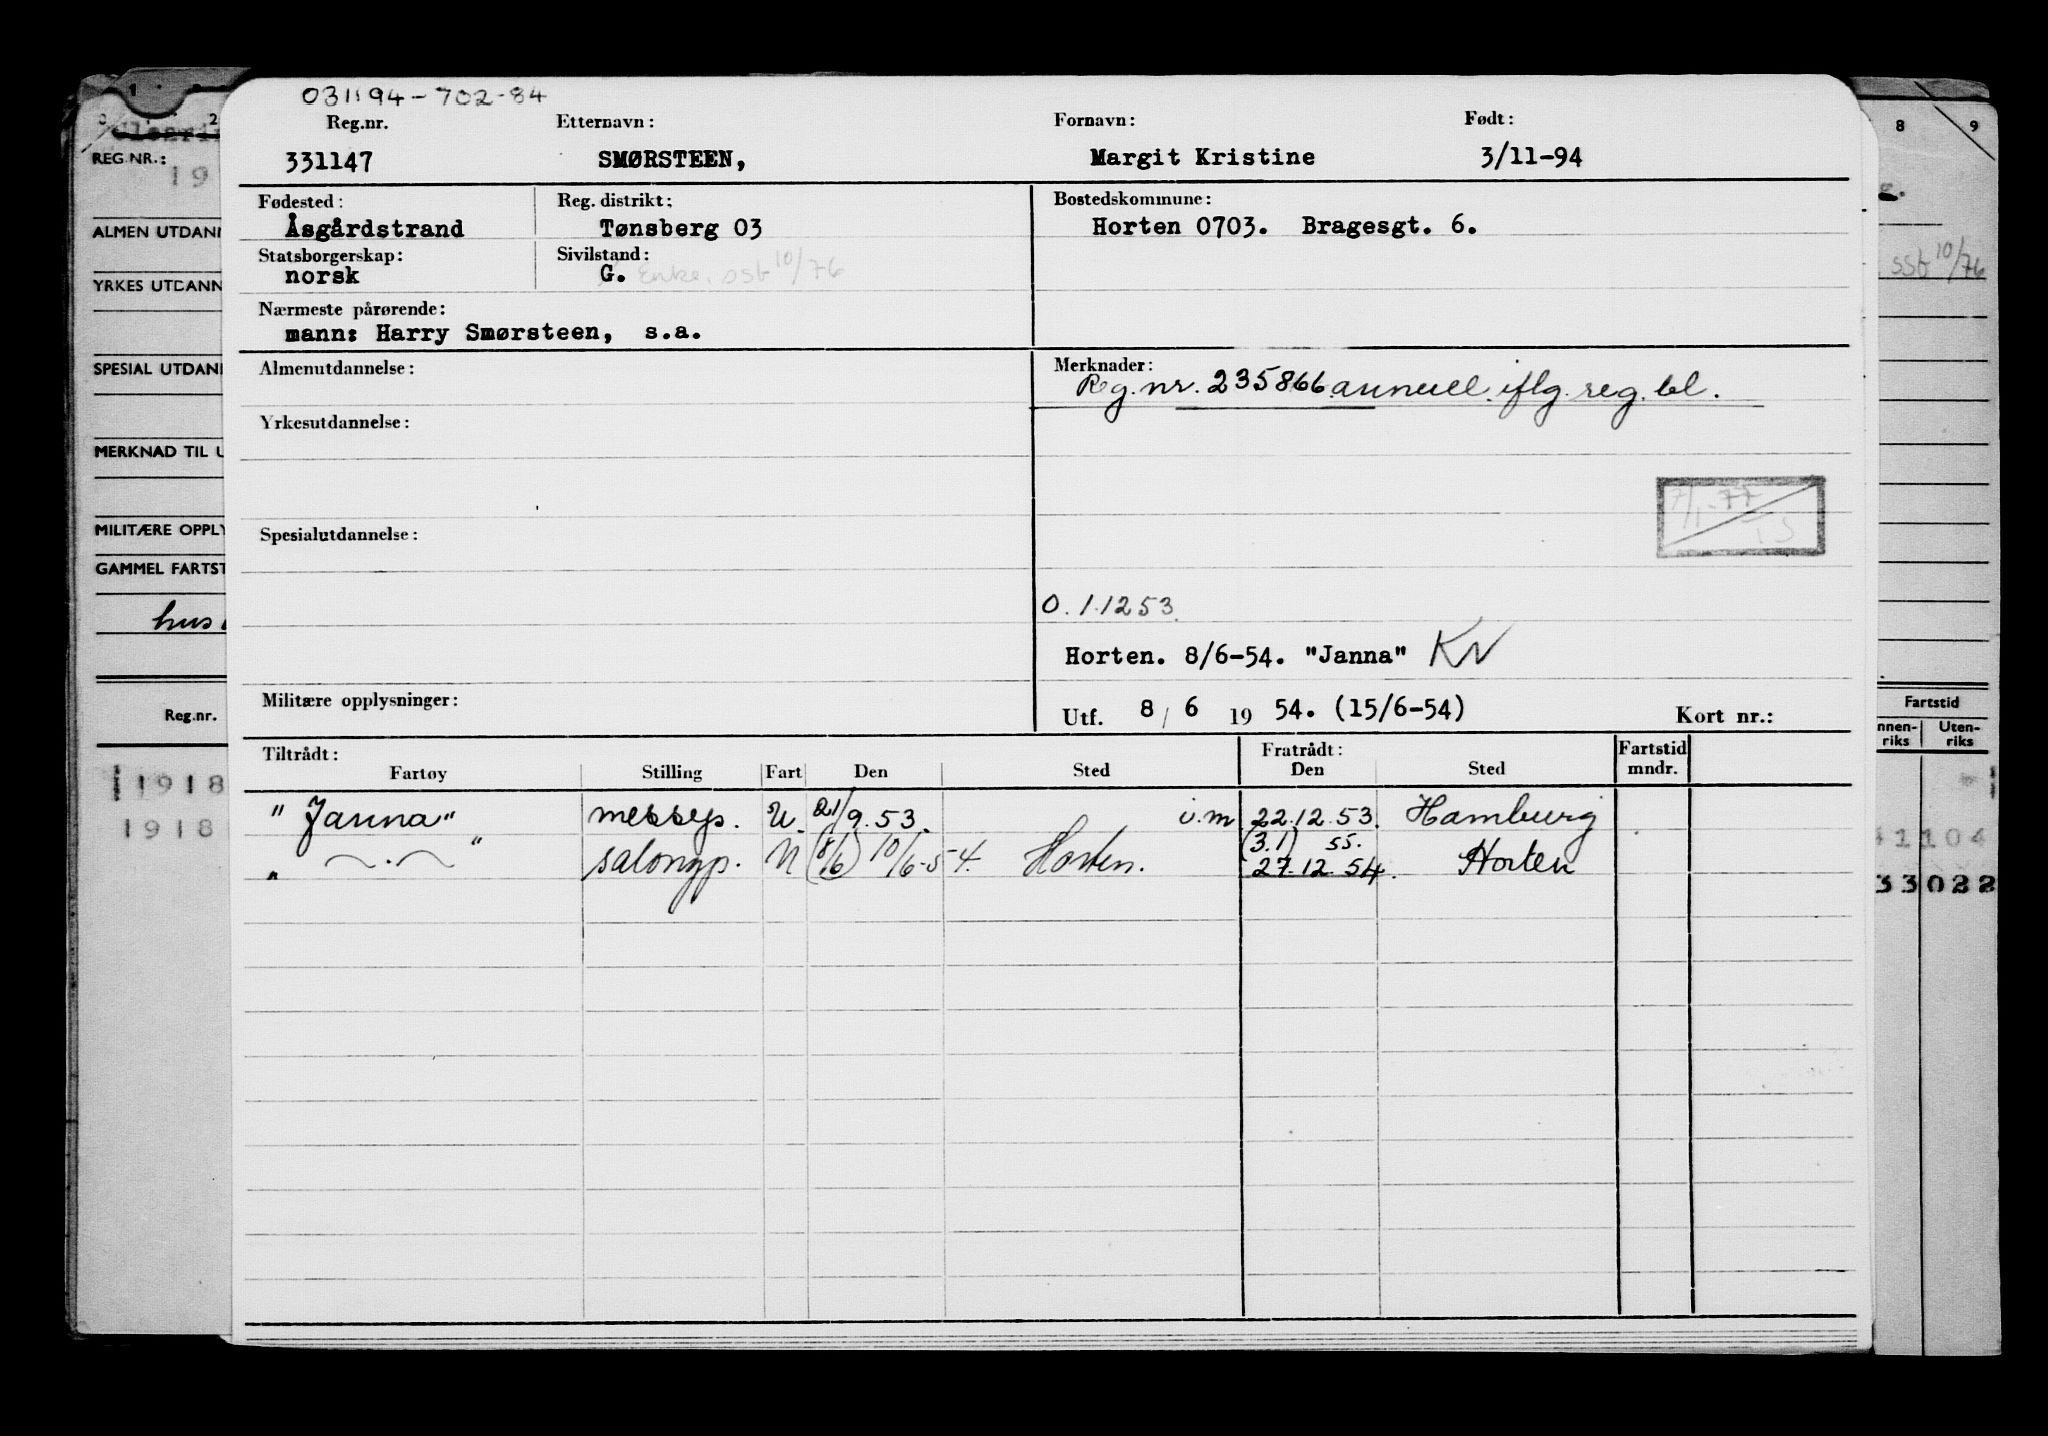 031194-702-84
Reg.nr. Etternavn: Fornavn: Født:
331147 SMØRSTEEN, Margit Kristine 3/11-94
Fødested: Reg. distrikt: Bostedskommune:
Åsgårdstrand Tønsberg 03 Horten 0703. Bragesgt. 6.
Statsborgerskap: Sivilstand:
norsk G. Enke. sst 10/76
Nærmeste pårørende:
mann: Harry Smørsteen, s.a.
Almenutdannelse: Merknader:
Reg.nr. 235866 annull. iflg. reg. bl.
Yrkesutdannelse:
7/1-77
TS
Spesialutdannelse:
0.1.1253.
Horten. 8/6-54. "Janna" KN
Militære opplysninger:
Utf. 8/6 19 54. (15/6-54) Kort nr.:
Tiltrådt: Fratrådt: Fartstid
Fartøy Stilling Fart Den Sted Den Sted mndr.
"Janna" messep. U. 21/9.53. u.m 22.12.53. Hamburg
(3.1) 55.
" — . — " salongp. U (8/6) 10/6-54. Horten. 27.12.54. Horten
REG.NR.:
19
ALMEN UTDANN
YRKES UTDANN
SPESIAL UTDAN
MERKNAD TIL U
MILITÆRE OPPLY
GAMMEL FARTST
hus
Reg.nr.
1918
1918
8 9
sst 10/76
Fartstid
nnen-riks Uten-riks
41104
33022